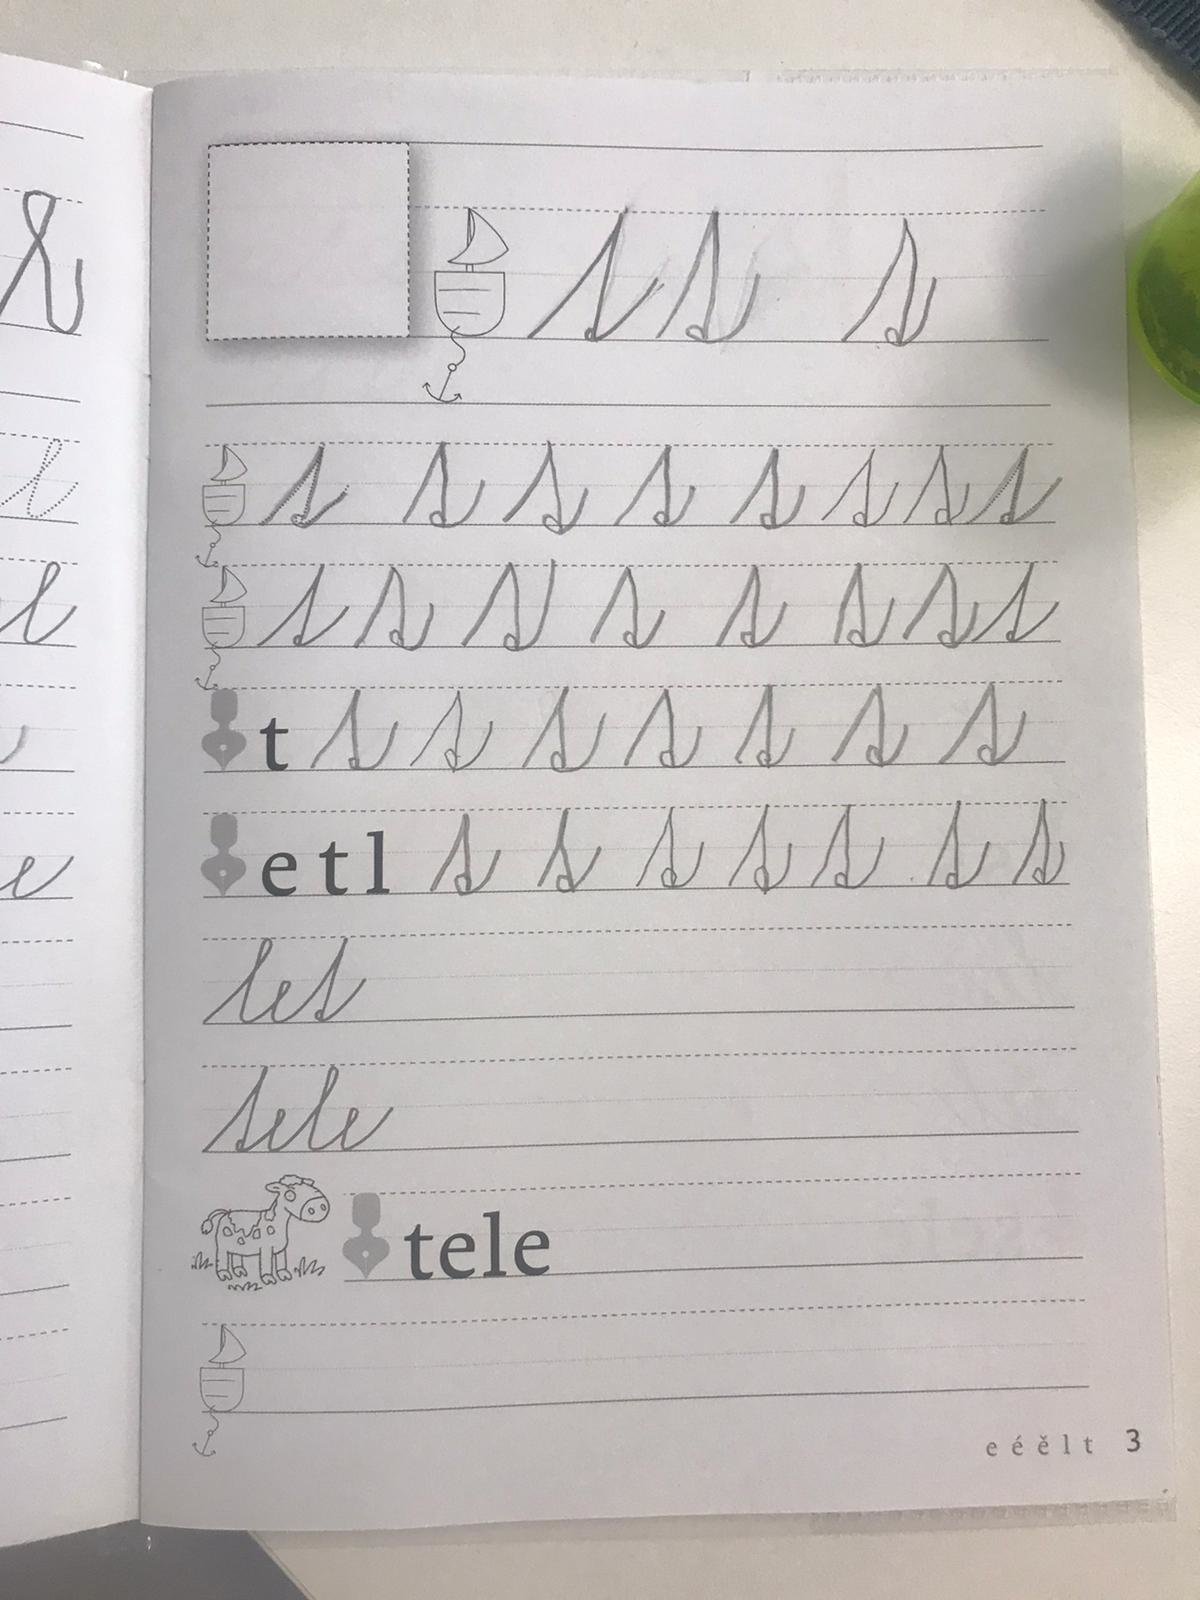 t t t
t t t t t t t t
t t t t t t t t
t t t t t t t t
e t l t t t t t t t
let
tele
tele
e é ě l t 3
l
l
l
e